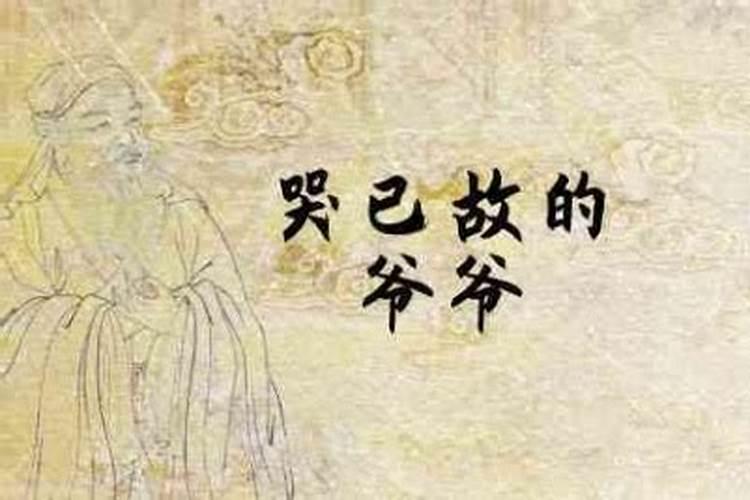 哭已故的
爷爷